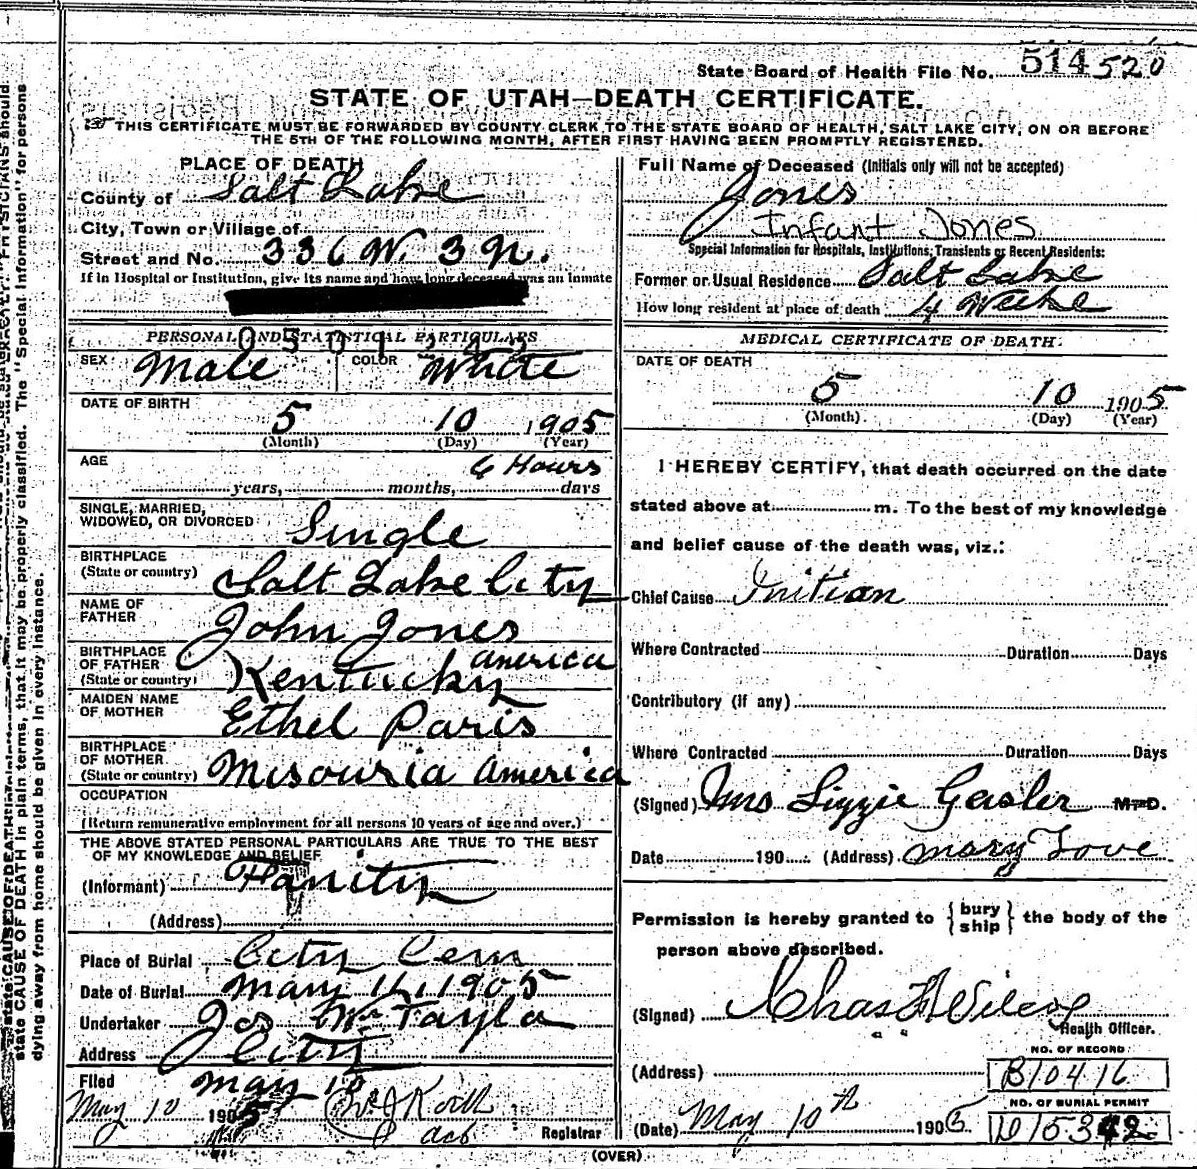 State Board of Health File No. 514 520
STATE OF UTAH—DEATH CERTIFICATE.
THIS CERTIFICATE MUST BE FORWARDED BY COUNTY CLERK TO THE STATE BOARD OF HEALTH, SALT LAKE CITY, ON OR BEFORE
THE 5TH OF THE FOLLOWING MONTH, AFTER FIRST HAVING BEEN PROMPTLY REGISTERED.
PLACE OF DEATH
County of Salt Lake
City, Town or Village of
Street and No. 336 W. 3 N.
If in Hospital or Institution, give its name and how long deceased was an inmate
PERSONAL AND STATISTICAL PARTICULARS
SEX Male COLOR White
DATE OF BIRTH
5 10 1905
(Month) (Day) (Year)
AGE 6 Hours
years, months, days
SINGLE, MARRIED,
WIDOWED, OR DIVORCED Single
BIRTHPLACE
(State or country) Salt Lake City
NAME OF
FATHER John Jones
BIRTHPLACE
OF FATHER america
(State or country) Kentucky
MAIDEN NAME
OF MOTHER Ethel Paris
BIRTHPLACE
OF MOTHER
(State or country) Misouria america
OCCUPATION
(Return remunerative employment for all persons 10 years of age and over.)
THE ABOVE STATED PERSONAL PARTICULARS ARE TRUE TO THE BEST
OF MY KNOWLEDGE AND BELIEF
(Informant)
(Address)
Place of Burial City Cem
Date of Burial May 11, 1905
Undertaker Jos Wm Tayla
Address City
Filed May 10
May 10 1905
Registrar
Full Name of Deceased (Initials only will not be accepted)
Jones
Infant Jones
Special Information for Hospitals, Institutions, Transients or Recent Residents:
Former or Usual Residence Salt Lake
How long resident at place of death 4 Weeke
MEDICAL CERTIFICATE OF DEATH.
DATE OF DEATH
5 10 1905
(Month) (Day) (Year)
I HEREBY CERTIFY, that death occurred on the date
stated above at m. To the best of my knowledge
and belief cause of the death was, viz.:
Chief Cause Initian
Where Contracted Duration Days
Contributory (if any)
Where Contracted Duration Days
(Signed) Mrs Lizzie Geisler M. D.
Date 190 (Address) mary Love
Permission is hereby granted to { bury ship } the body of the
person above described.
(Signed) Chas
Health Officer.
NO. OF RECORD
(Address) B10416
NO. OF BURIAL PERMIT
(Date) May 10th 1905 D15342
(OVER)
state CAUSE OF DEATH in plain terms, that it may be properly classified. The "Special Information" for persons
dying away from home should be given in every instance.